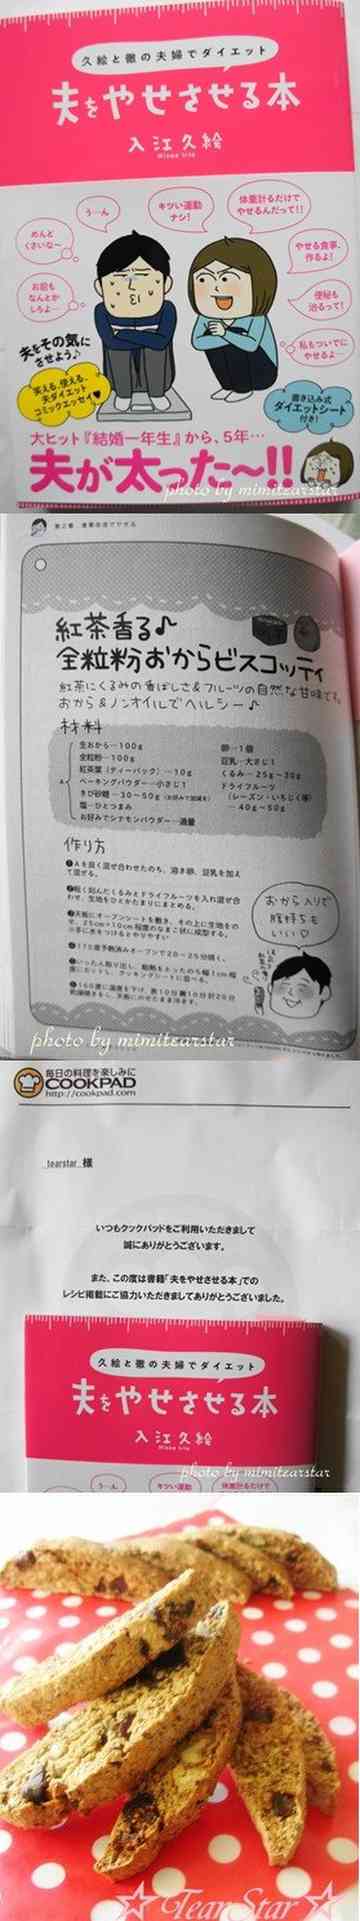 久絵と徹の夫婦でダイエット
夫をやせさせる本
入江久絵
Hisae Irie
めんど
くさいな〜
う…ん
キツい運動
ナシ!
体重計るだけで
やせるんだって!!
やせる食事、
作るよ!
お前も
なんとか
しろよ…
便秘も
治るって!
私もついでに
やせるよ…
夫をその気に
させよう♪
笑える、使える、
夫ダイエット
コミックエッセイ♥
書き込み式
ダイエットシート
付き!
大ヒット『結婚一年生』から、5年…
夫が太った〜!!
photo by mimitearstar
第2章 食事改善でやせる
紅茶香る♪
全粒粉おからビスコッティ
紅茶にくるみの香ばしさ&フルーツの自然な甘味です。
おから&ノンオイルでヘルシー♪
材料
A
生おから…100g
全粒粉…100g
紅茶葉(ティーバック)…10g
ベーキングパウダー…小さじ1
きび砂糖…30〜50g(お好みで加減を)
塩…ひとつまみ
お好みでシナモンパウダー…適量
卵…1個
豆乳…大さじ1
くるみ…25g〜30g
ドライフルーツ
(レーズン・いちじく等)
…40g〜50g
作り方
❶Aを良く混ぜ合わせたのち、溶き卵、豆乳を加え
て混ぜる。
❷軽く刻んだくるみとドライフルーツを入れ混ぜ合
わせ、生地をひとかたまりにまとめる。
❸天板にオープンシートを敷き、その上に生地をの
せ、25cm×10cm程度のなまこ状に成型する。
※手に水をつけるとやりやすい
❹170度予熱済みオーブンで20〜25分焼く。
❺いったん取り出し、粗熱をとったのち幅1cm程
度にカットし、クッキングシートに並べる。
❻160度に温度を下げ、表10分裏10分計20分
乾燥焼きをし、天板にのせたまま冷ます。
おから入りで
腹持ちも
いい♡
photo by mimitearstar
毎日の料理を楽しみに
COOKPAD
http://cookpad.com
tearstar 様
いつもクックパッドをご利用いただきまして
誠にありがとうございます。
また、この度は書籍「夫をやせさせる本」での
レシピ掲載にご協力いただきましてありがとうございました。
久絵と徹の夫婦でダイエット
夫をやせさせる本
入江久絵
Hisae Irie
う…ん
キツい運動
体重計るだけで
photo by mimitearstar
☆TearStar☆